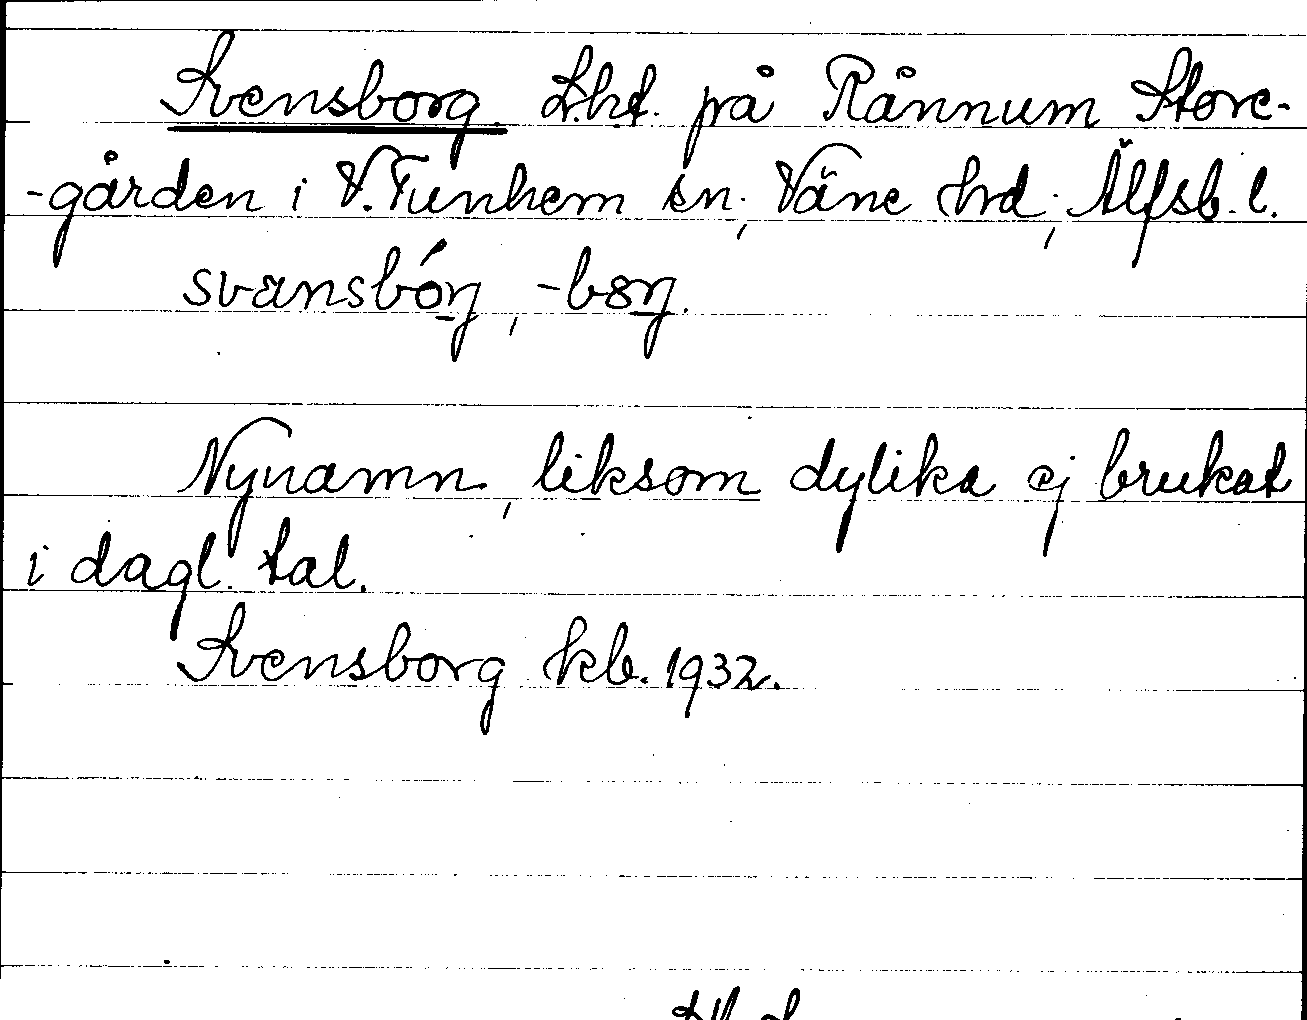 Svensborg. Lht. på Rånnum Store-
-gården i V. Tunhem sn, Väne hrd, Älfsb. l.
svänsbóry, -bory.
Nynamn, liksom dylika ej brukat
i dagl. tal.
Svensborg kb. 1932.